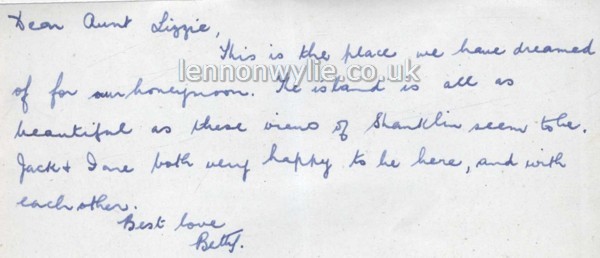 Dear Aunt Lizzie,
This is the place we have dreamed
lennonwylie.co.uk
of for our honeymoon. The island is all as
beautiful as these views of Shanklin seem to be.
Jack & I are both very happy to be here, and with
each other.
Best love
Betty.